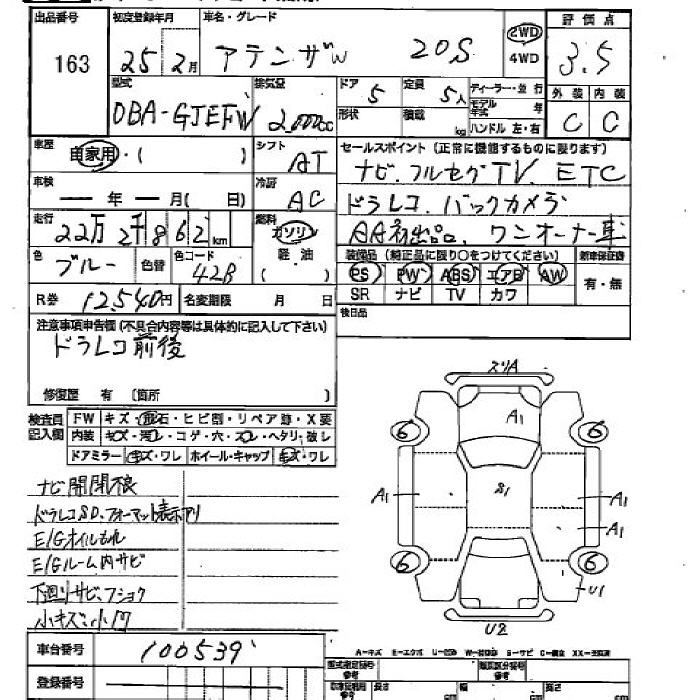 出品番号
163
初度登録年月
25 2月
車名・グレード
アテンザW 20S
2WD
4WD
評価点
3.5
型式
DBA-GJEFW
排気量
2,000cc
ドア
5
定員
5人
ディーラー・並行
モデル 年
ハンドル 左・右
形状
積載 kg
外装
C
内装
C
車歴
自家用・( )
シフト
AT
セールスポイント (正常に機能するものに限ります)
ナビ.フルセグTV. ETC
車検
— 年 — 月( 日)
冷房
AC
ドラレコ. バックカメラ
走行
22万2千862km
燃料
ガソリン
軽油
( )
AA初出品. ワンオーナー車
色
ブルー
色替
色コード
42B
装備品 (純正品に限り○をつけてください)
新車保証書
PS PW ABS エアB AW
有・無
SR ナビ TV カワ
R券 12,540円
名変期限 月 日
後日品
注意事項申告欄 (不具合内容等は具体的に記入して下さい)
ドラレコ前後
修復歴 有 〔箇所 〕
検査員
記入欄
FW キズ・飛石・ヒビ割・リペア跡・X要
内装 キズ・汚レ・コゲ・穴・スレ・ヘタリ・破レ
ドアミラー キズ・ワレ ホイール・キャップ キズ・ワレ
ナビ開閉不良
ドラレコSD.フォーマット表示アリ
E/Gオイルもれ
E/Gルーム内サビ
下廻りサビ.フショク
小キズ.小凹
スリA
A1
6
6
A1
S1
A1
A1
6
6
U1
U2
車台番号
100539
登録番号
A-キズ E-エクボ U-凹み
S-サビ
XX-交換済
型式指定番号
参考
類別区分番号
参考
長さ
幅
高さ
cm
cm
cm